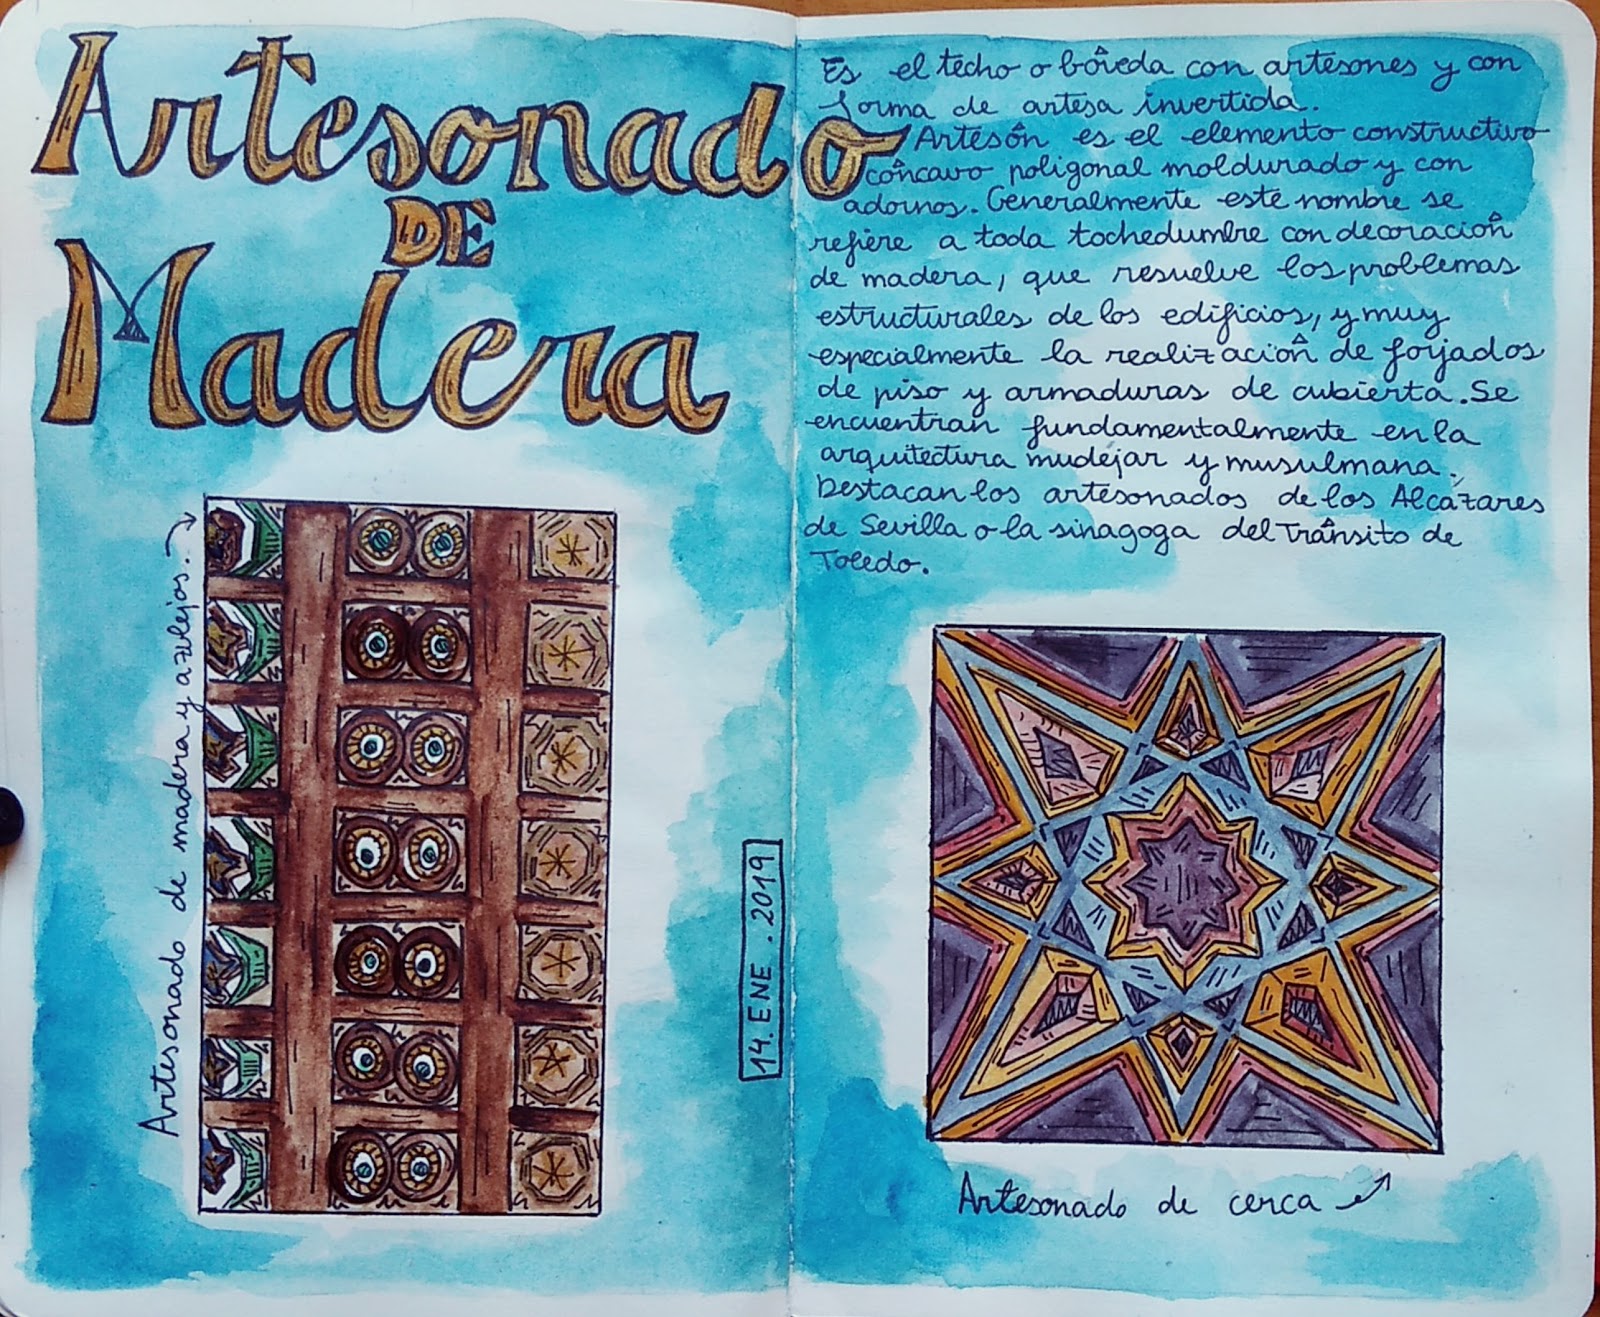 Artesonado
DE
Madera
Artesonado de madera y azulejos.
14. ENE. 2019
Es el techo o bóveda con artesones y con
forma de artesa invertida.
Artesón es el elemento constructivo
cóncavo poligonal moldurado y con
adornos. Generalmente este nombre se
refiere a toda tochedumbre con decoración
de madera, que resuelve los problemas
estructurales de los edificios, y muy
especialmente la realización de forjados
de piso y armaduras de cubierta. Se
encuentran fundamentalmente en la
arquitectura mudéjar y musulmana.
Destacan los artesonados de los Alcázares
de Sevilla o la sinagoga del Tránsito de
Toledo.
Artesonado de cerca